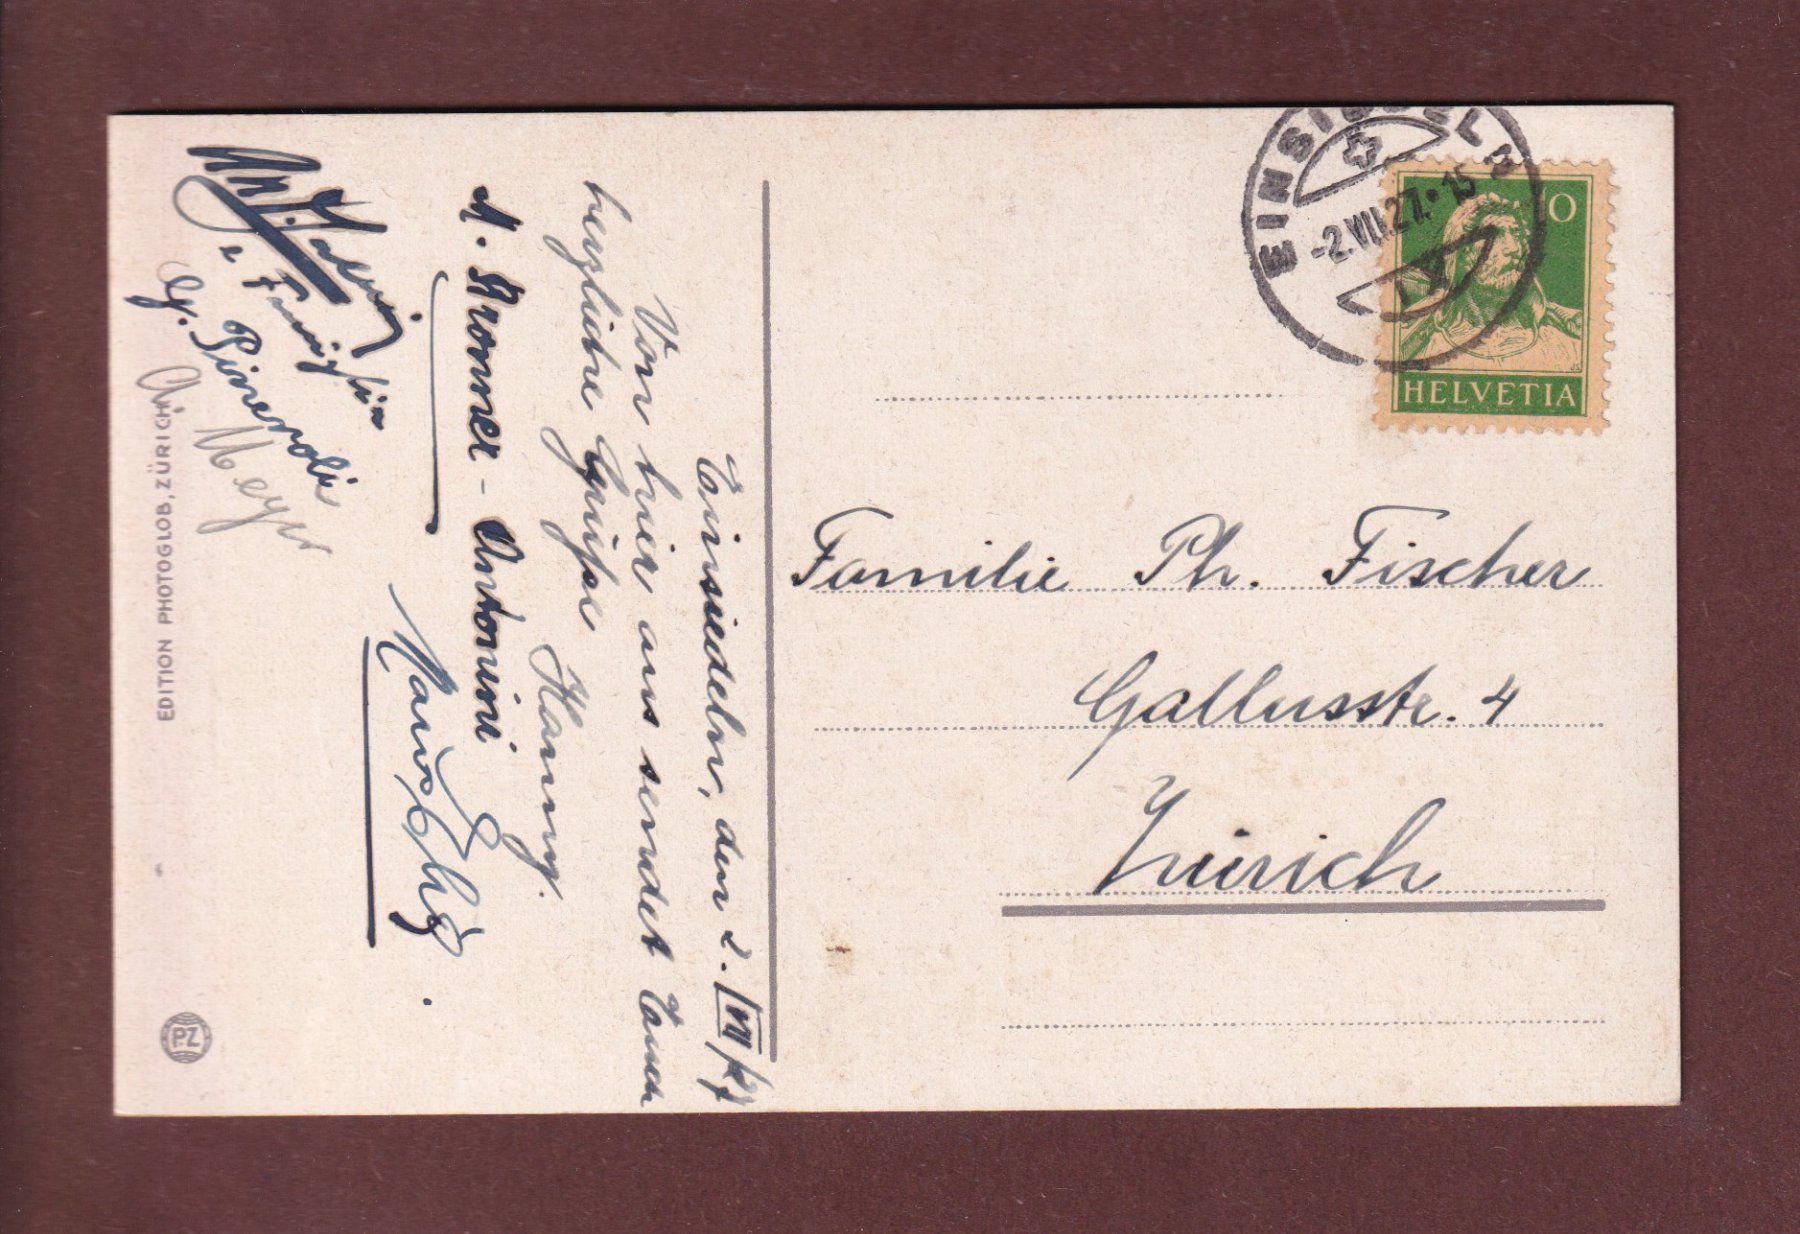 EINSIEDELN
-2.VII.27.-15
10
HELVETIA
Familie Ph. Fischer
Gallusstr. 4
Zürich
Einsiedeln, den 2. VII/27
Von hier aus sendet Euch
herzliche Grüsse
Hanny.
Kronner - Antonini
Hans
Meyer
EDITION PHOTOGLOB, ZÜRICH
PZ